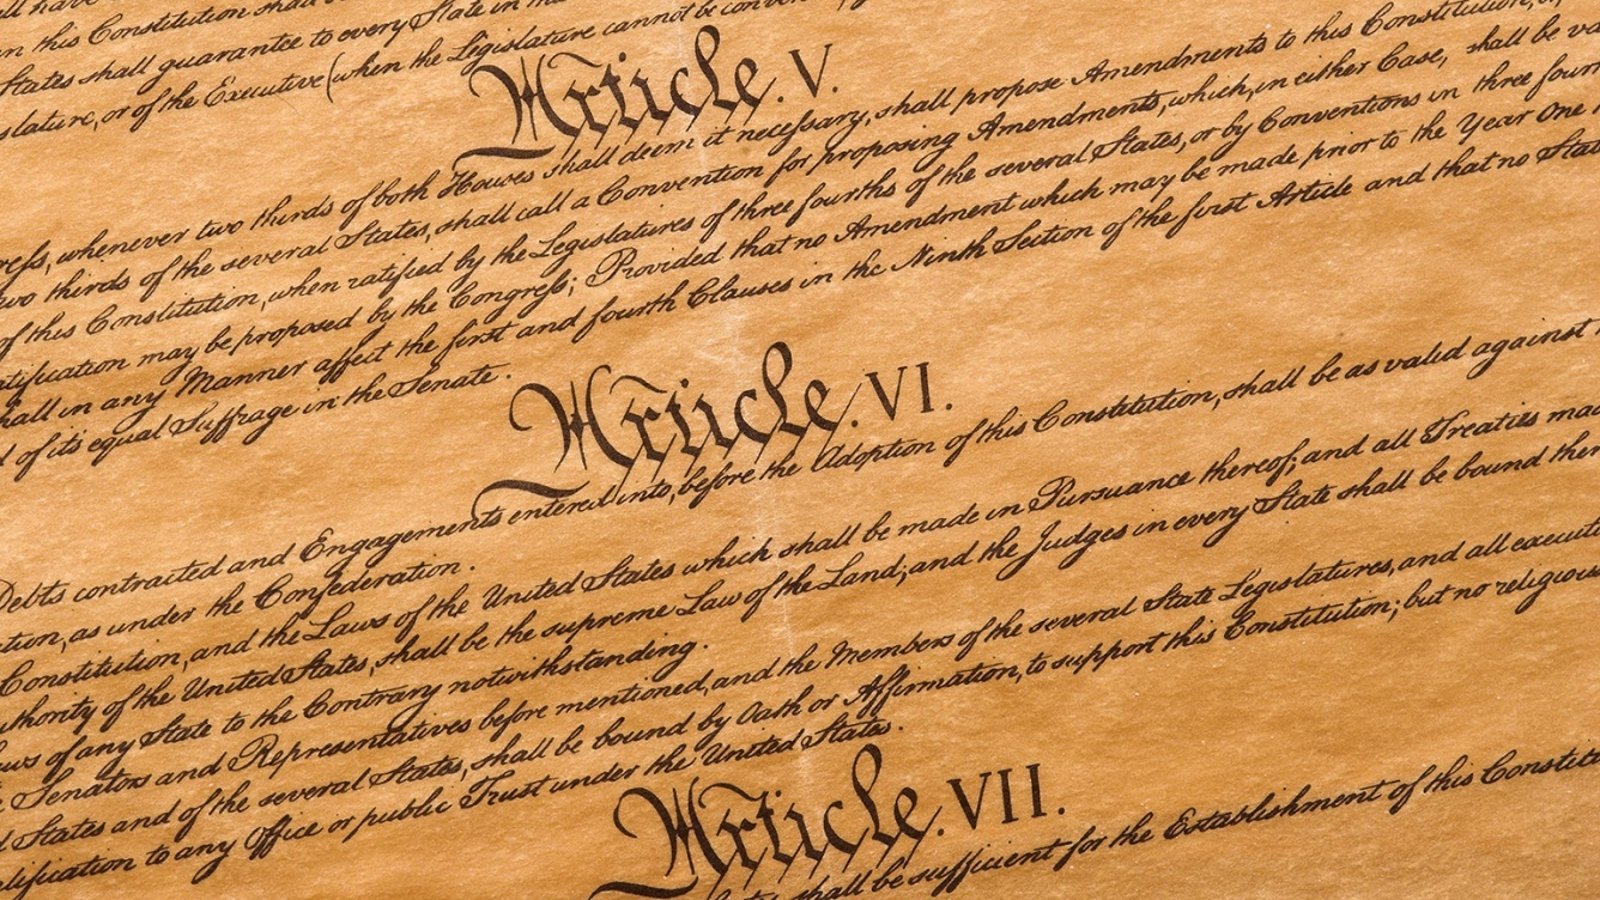 in this Constitution shall
States shall guarantee to every State in
slature, or of the Executive (when the Legislature cannot be conven
Article. V.
ress, whenever two thirds of both Houses shall deem it necessary, shall propose Amendments to this Constitution, or,
two thirds of the several States, shall call a Convention for proposing Amendments, which, in either Case, shall be va
of this Constitution, when ratified by the Legislatures of three fourths of the several States, or by Conventions in three four
atification may be proposed by the Congress; Provided that no Amendment which may be made prior to the Year One
hall in any Manner affect the first and fourth Clauses in the Ninth Section of the first Article and that no Stat
of its equal Suffrage in the Senate.
Article. VI.
Debts contracted and Engagements entered into, before the Adoption of this Constitution, shall be as valid against
ution, as under the Confederation.
Constitution, and the Laws of the United States which shall be made in Pursuance thereof; and all Treaties mad
uthority of the United States, shall be the supreme Law of the Land; and the Judges in every State shall be bound ther
aws of any State to the Contrary notwithstanding.
Senators and Representatives before mentioned, and the Members of the several State Legislatures, and all executi
d States and of the several States, shall be bound by Oath or Affirmation, to support this Constitution; but no religious
alification to any Office or public Trust under the United States.
Article. VII.
shall be sufficient for the Establishment of this Constitu